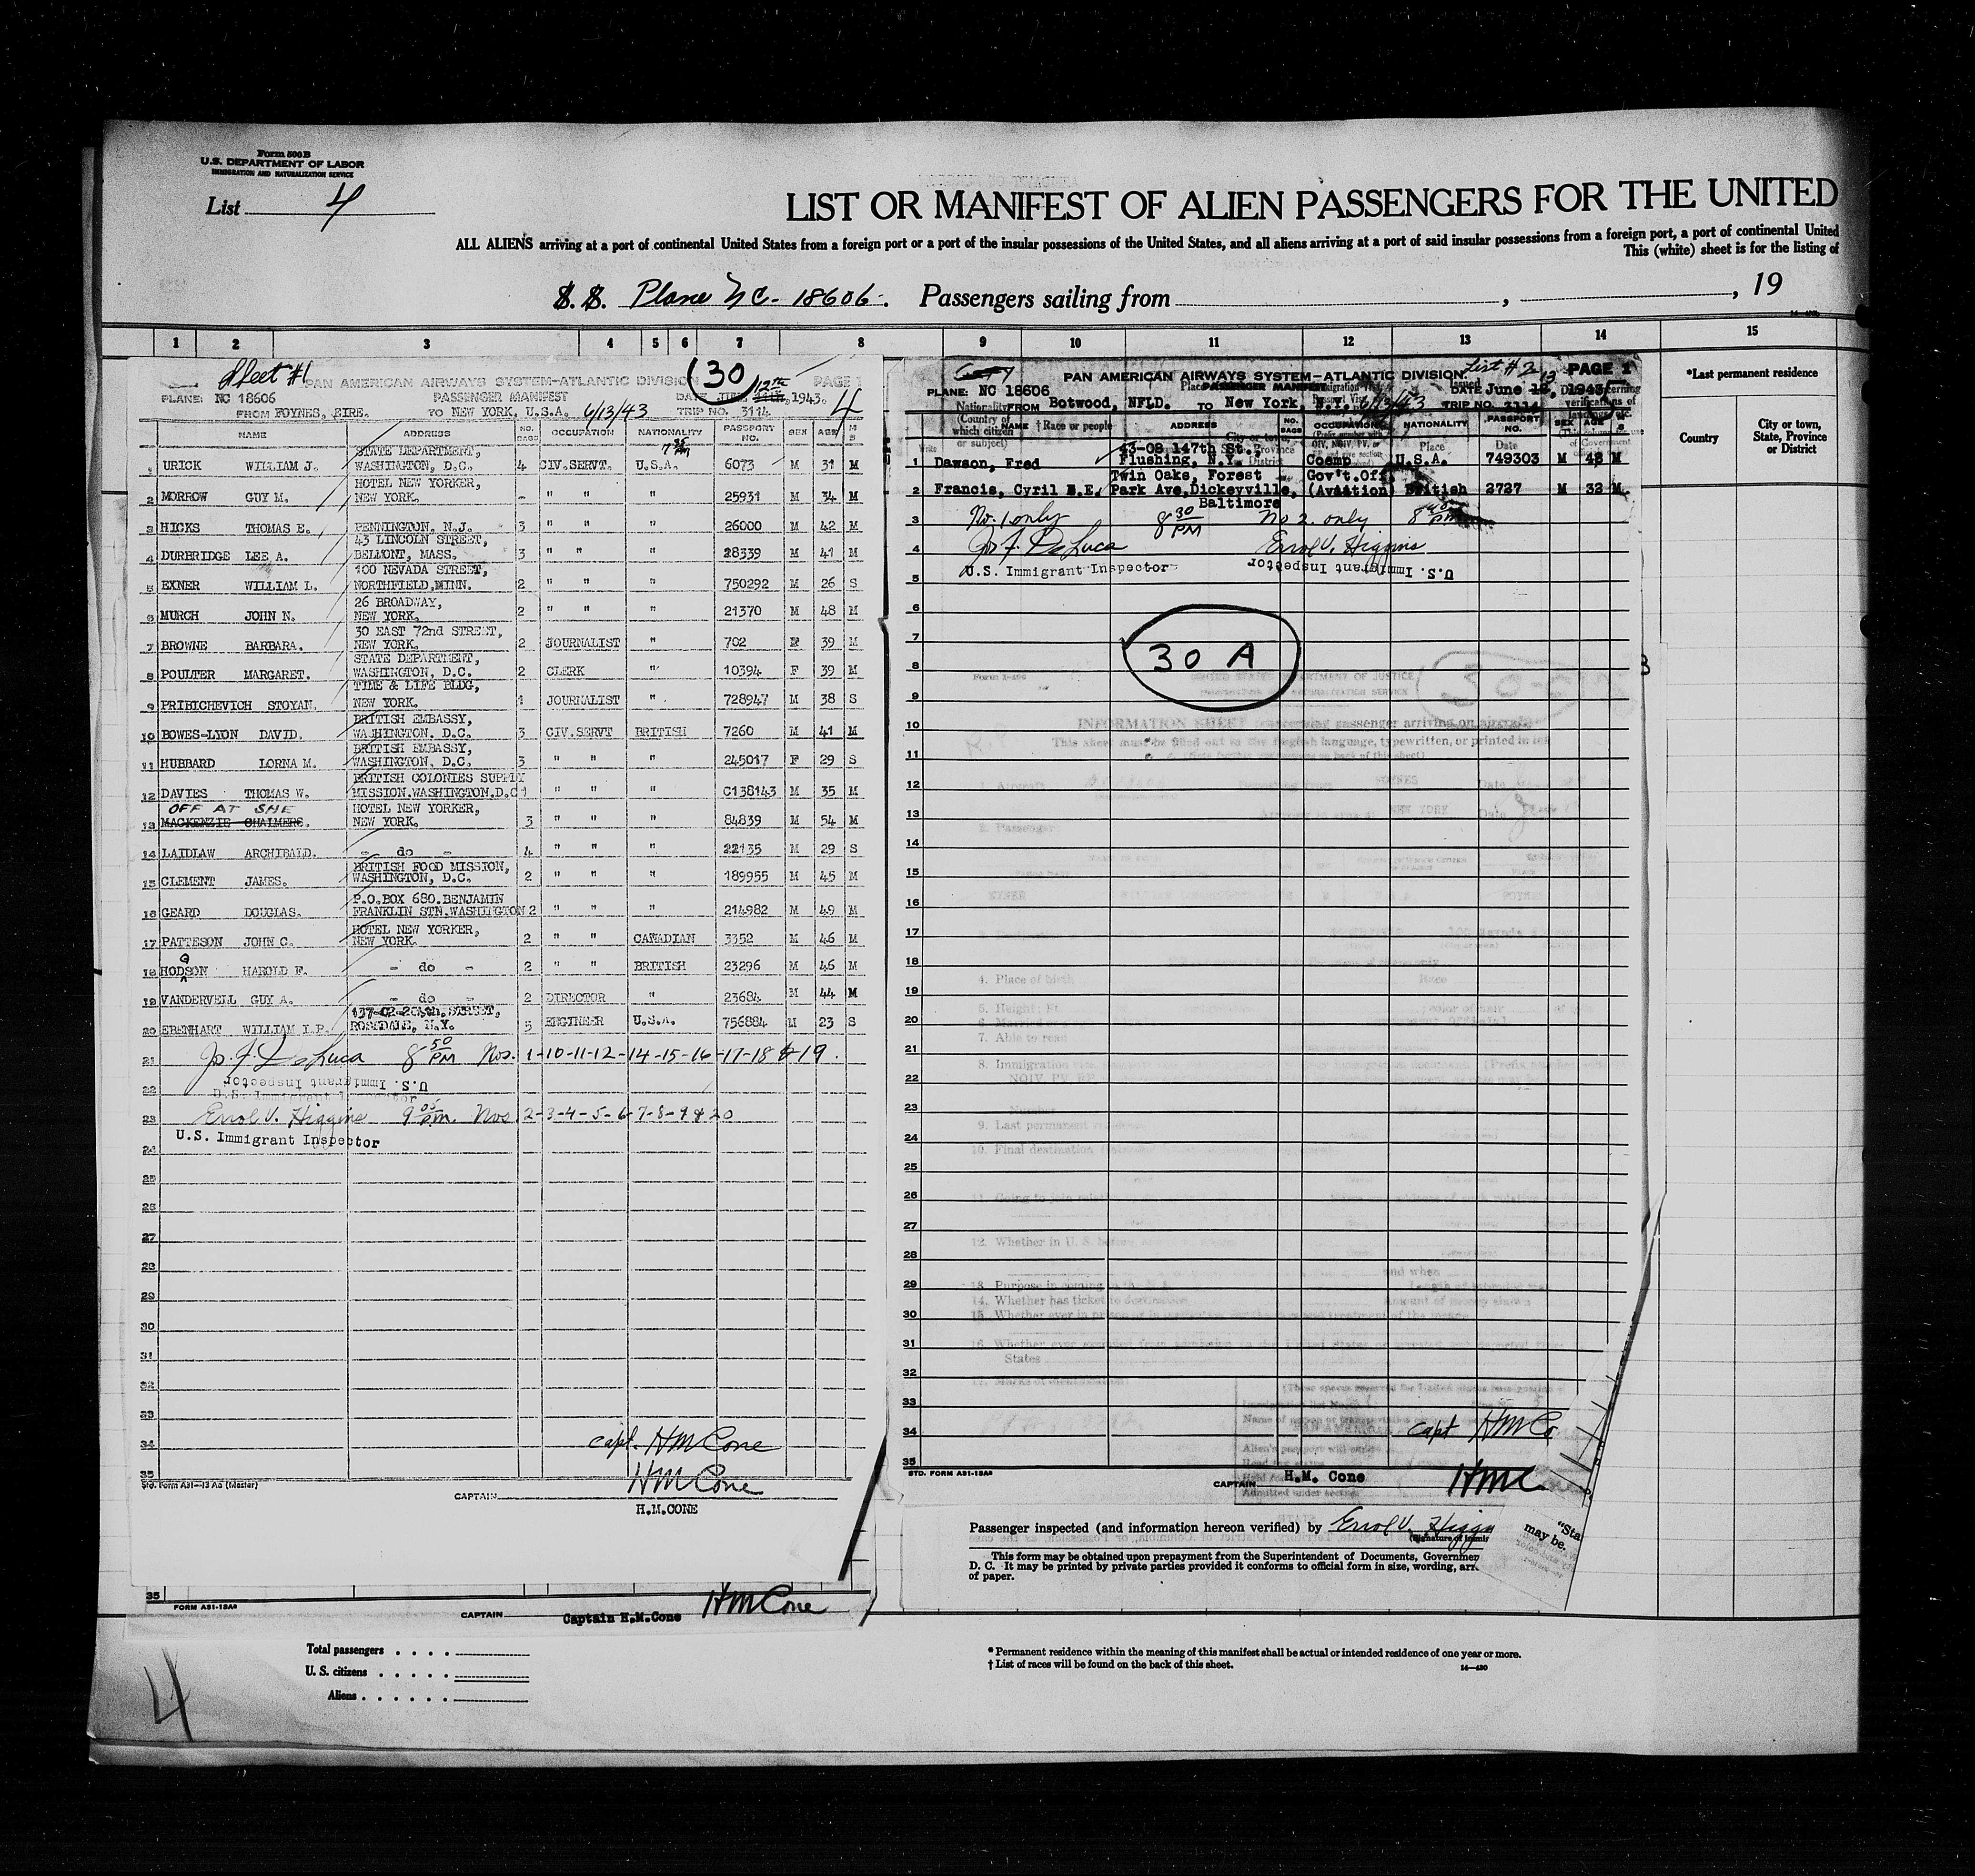 Form 500B
U.S. DEPARTMENT OF LABOR
IMMIGRATION AND NATURALIZATION SERVICE
List 4
LIST OR MANIFEST OF ALIEN PASSENGERS FOR THE UNITED
ALL ALIENS arriving at a port of continental United States from a foreign port or a port of the insular possessions of the United States, and all aliens arriving at a port of said insular possessions from a foreign port, a port of continental United
This (white) sheet is for the listing of
S. S. Plane NC-18606. Passengers sailing from , , 19
1 2 3 4 5 6 7 8 9 10 11 12 13 14 15
Sheet #1
PAN AMERICAN AIRWAYS SYSTEM-ATLANTIC DIVISION (30) 12th PAGE 1
PLANE: NC 18606 PASSENGER MANIFEST DATE 1943. 4
FROM FOYNES, EIRE. TO NEW YORK, U.S.A. 6/13/43 TRIP NO. 3114
NAME ADDRESS NO. BAGS OCCUPATION NATIONALITY PASSPORT NO. SEX AGE M S
STATE DEPARTMENT,
1 URICK WILLIAM J. WASHINGTON, D.C. 4 CIV.SERVT. U.S.A. 6073 M 31 M
HOTEL NEW YORKER,
2 MORROW GUY M. NEW YORK. - " " " 25931 M 34 M
3 HICKS THOMAS E. PENNINGTON, N.J. 3 " " " 26000 M 42 M
43 LINCOLN STREET,
4 DURBRIDGE LEE A. BELMONT, MASS. 3 " " " 28339 M 41 M
100 NEVADA STREET,
5 EXNER WILLIAM L. NORTHFIELD,MINN. 2 " " " 750292 M 26 S
26 BROADWAY,
6 MURCH JOHN N. NEW YORK. 2 " " " 21370 M 48 M
30 EAST 72nd STREET,
7 BROWNE BARBARA. NEW YORK. 2 JOURNALIST " 702 F 39 M
STATE DEPARTMENT,
8 POULTER MARGARET. WASHINGTON, D.C. 2 CLERK " 10394 F 39 M
TIME & LIFE BLDG,
9 PRIBICHEVICH STOYAN. NEW YORK. 1 JOURNALIST " 728947 M 38 S
BRITISH EMBASSY,
10 BOWES-LYON DAVID. WASHINGTON, D.C. 3 CIV.SERVT BRITISH 7260 M 41 M
BRITISH EMBASSY,
11 HUBBARD LORNA M. WASHINGTON, D.C. 3 " " " 245017 F 29 S
BRITISH COLONIES SUPPLY
12 DAVIES THOMAS W. MISSION.WASHINGTON.D.C 1 " " " C138143 M 35 M
OFF AT SHE HOTEL NEW YORKER,
13 MACKENZIE CHALMERS. NEW YORK. 3 " " " 84839 M 54 M
14 LAIDLAW ARCHIBALD. - do - 4 " " " 22135 M 29 S
BRITISH FOOD MISSION,
15 CLEMENT JAMES. WASHINGTON, D.C. 2 " " " 189955 M 45 M
P.O.BOX 680.BENJAMIN
16 GEARD DOUGLAS. FRANKLIN STN.WASHINGTON 2 " " " 214982 M 49 M
HOTEL NEW YORKER,
17 PATTESON JOHN C. NEW YORK. 2 " " CANADIAN 3352 M 46 M
G
18 HODSON HAROLD F. - do - 2 " " BRITISH 23296 M 46 M
19 VANDERVELL GUY A. - do - 2 DIRECTOR " 23684 M 44 M
STREET,
20 EBENHART WILLIAM I.P. ROSEDALE, N.Y. 5 ENGINEER U.S.A. 756884 M 23 S
21 Jo. F. DeLuca 8 50 PM Nos. 1-10-11-12-14-15-16-17-18 & 19.
22 U.S. Immigrant Inspector
U.S. Immigrant Inspector
23 Errol V. Higgins 9 05 P.M. Nos. 2-3-4-5-6-7-8-9 & 20
U.S. Immigrant Inspector
24
25
26
27
28
29
30
31
32
33
34 Capt. HM Cone
35
Std. Form A31-13 Aa (Master)
HM Cone
CAPTAIN
H.M.CONE
35
FORM A31-13A8
CAPTAIN Captain H.M.Cone HM Cone
Total passengers
U.S. citizens
Aliens
4
List #2
PAN AMERICAN AIRWAYS SYSTEM-ATLANTIC DIVISION. PAGE 1
PLANE: NC 18606 PASSENGER MANIFEST DATE June 1943
FROM Botwood, NFLD. TO New York, N.Y. 6/13/43 TRIP NO. 3114
NAME ADDRESS NO. BAGS OCCUPATION NATIONALITY PASSPORT NO. SEX AGE
43-08 147th St.,
1 Dawson, Fred Flushing, N.Y. Coemp U.S.A. 749303 M 48 M
Twin Oaks, Forest Gov't.Off.
2 Francis, Cyril E.E. Park Ave,Dickeyville, (Aviation) British 2727 M 32 M
Baltimore
3 No. 1 only 8 30 PM No 2. only 8 PM
4 Jo. F. DeLuca Errol V. Higgins
5 U.S. Immigrant Inspector U.S. Immigrant Inspector
6
7
30 A
8
9
10
INFORMATION SHEET concerning passenger arriving on aircraft
This sheet must be filled out in the English language, typewritten, or printed in ink
11
12
13
14
15
16
17
18
4. Place of birth Race
19
20
21
7. Able to read
22
23
9. Last permanent
24
10. Final destination
25
26
27
12. Whether in U. S. before
28
29
13. Purpose in coming to
14. Whether has ticket to destination
30
31
States
32
33
34 Capt HM Co
35
STD. FORM A31-13A8
CAPTAIN H.M. Cone HMC
Passenger inspected (and information hereon verified) by Errol V. Higgi
This form may be obtained upon prepayment from the Superintendent of Documents, Governmen
D. C. It may be printed by private parties provided it conforms to official form in size, wording, arr
of paper.
"Sta
may be.
*Last permanent residence
Country City or town, State, Province or District
* Permanent residence within the meaning of this manifest shall be actual or intended residence of one year or more.
† List of races will be found on the back of this sheet.
14-430